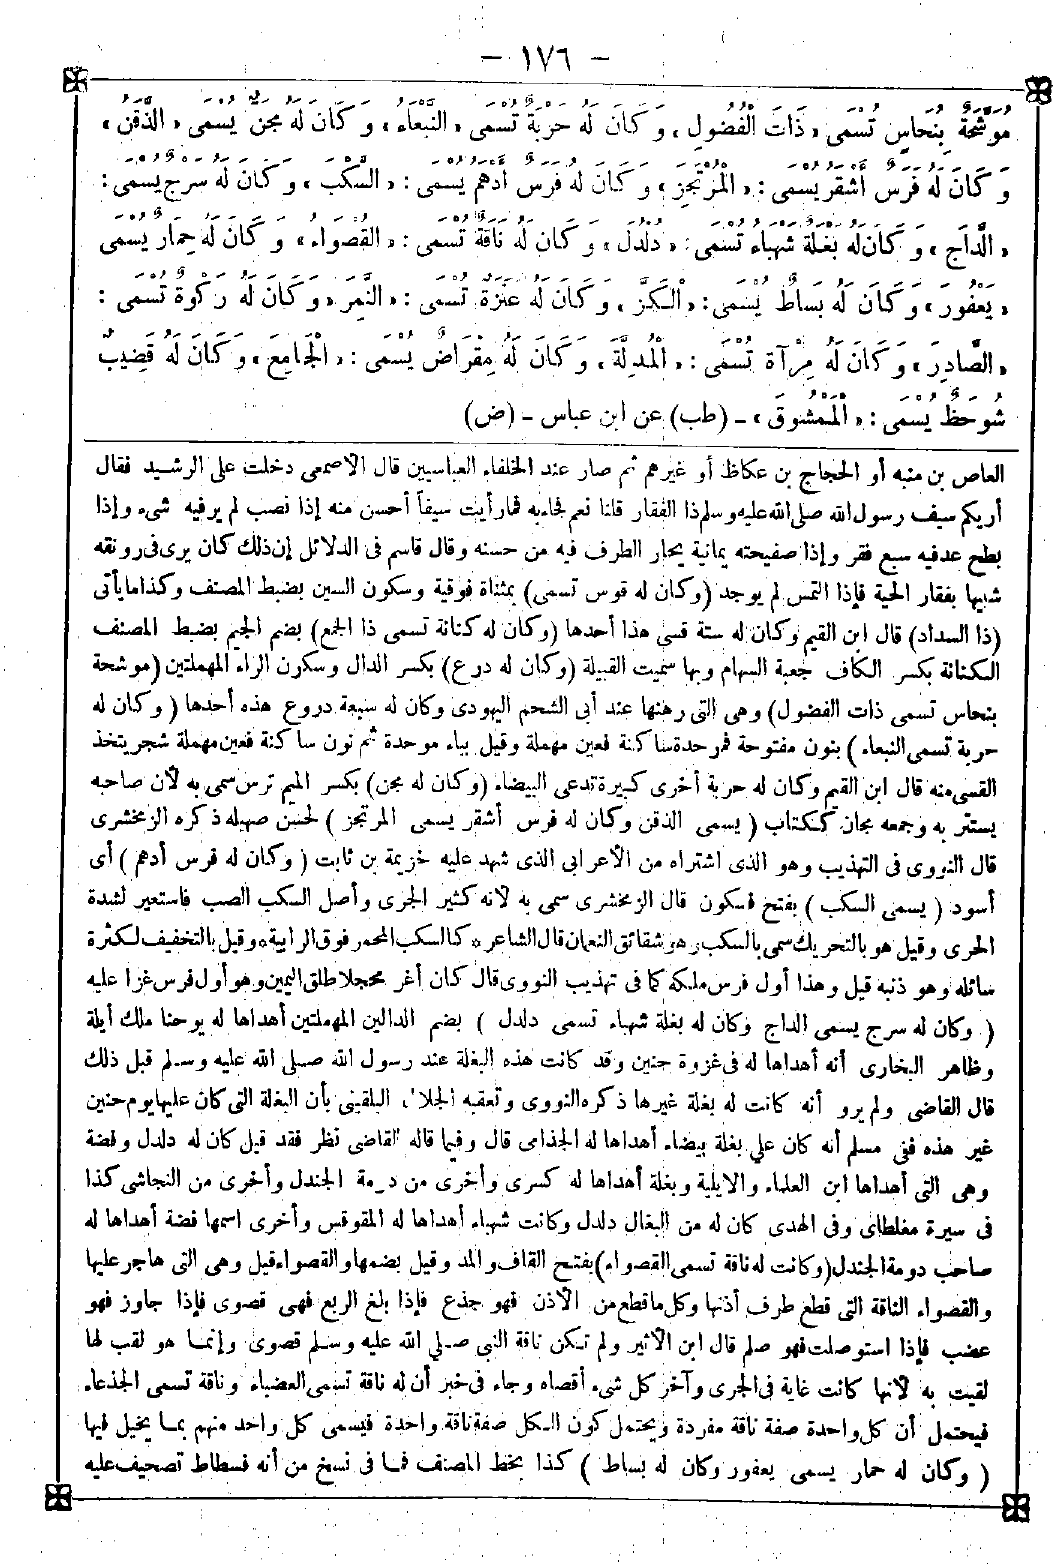 - ١٧٦ -
مُوَشَّحَةٌ بِنُحَاسٍ تُسَمَى «ذَاتَ الْفُضُولِ» وَكَانَ لَهُ حَرْبَةٌ تُسْمَى «النَّبْعَاءُ» وَكَانَ لَهُ مِجَنٌّ يُسْمَى «الذَّقَنُ»
وَكَانَ لَهُ فَرَسٌ أَشْقَرُ يُسْمَى: «الْمُرْتَجِزَ» وَكَانَ لَهُ فَرَسٌ أَدْهَمُ يُسْمَى: «السَّكْبَ» وَكَانَ لَهُ سَرْجٌ يُسْمَى:
«الدَّاجَ» وَكَانَ لَهُ بَغْلَةٌ شَهْبَاءُ تُسْمَى: «دُلْدُلَ» وَكَانَ لَهُ نَاقَةٌ تُسْمَى: «القُصْوَاءُ» وَكَانَ لَهُ حِمَارٌ يُسْمَى
«يَعْفُورَ» وَكَانَ لَهُ بَسَاطٌ يُسْمَى: «الْكَزَّ» وَكَانَ لَهُ عَنَزَةٌ تُسْمَى: «النَّمِرَ» وَكَانَ لَهُ رَكْوَةٌ تُسْمَى:
«الصَّادِرَ» وَكَانَ لَهُ مِرْآةٌ تُسْمَى: «الْمُدِلَّةَ» وَكَانَ لَهُ مِقْرَاضٌ يُسْمَى: «الْجَامِعَ» وَكَانَ لَهُ قَضِيبٌ
شُوحَطٌ يُسْمَى: «الْمَمْشُوقَ» - (طب) عن ابن عباس - (ض)
العاص بن منبه أو الحجاج بن عكاظ أو غيرهم ثم صار عند الخلفاء العباسيين قال الأصمعى دخلت على الرشيد فقال
أريكم سيف رسول الله صلى الله عليه وسلم ذا الفقار قلنا نعم فجاء به فما رأيت سيفا أحسن منه إذا نصب لم ير فيه شىء وإذا
بطح عد فيه سبع فقر وإذا صفيحته يمانية يحار الطرف فيه من حسنه وقال قاسم فى الدلائل إن ذلك كان يرى فى رونقه
شبيها بفقار الحية فإذا التمس لم يوجد (وكان له قوس تسمى) بمثناة فوقية وسكون السين بضبط المصنف وكذا ما يأتى
(ذا السداد) قال ابن القيم وكان له ستة قسى هذا أحدها (وكان له كنانة تسمى ذا الجمع) بضم الجيم بضبط المصنف
الكنانة بكسر الكاف جعبة السهام وبها سميت القبيلة (وكان له درع) بكسر الدال وسكون الراء المهملتين (موشحة
بنحاس تسمى ذات الفضول) وهى التى رهنها عند أبى الشحم اليهودى وكان له سبعة دروع هذه أحدها (وكان له
حربة تسمى النبعاء) بنون مفتوحة فموحدة ساكنة فعين مهملة وقيل بباء موحدة ثم نون ساكنة فعين مهملة شجر يتخذ
القسى منه قال ابن القيم وكان له حربة أخرى كبيرة تدعى البيضاء (وكان له مجن) بكسر الميم ترس سمى به لأن صاحبه
يستتر به وجمعه مجان ككتاب (يسمى الذقن وكان له فرس أشقر يسمى المرتجز) لحسن صهيله ذكره الزمخشرى
قال النووى فى التهذيب وهو الذى اشتراه من الأعرابى الذى شهد عليه خزيمة بن ثابت (وكان له فرس أدهم) أى
أسود (يسمى السكب) بفتح فسكون قال الزمخشرى سمى به لأنه كثير الجرى وأصل السكب الصب فاستعير لشدة
الجرى وقيل هو بالتحريك سمى بالسكب وهو شقائق النعمان قال الشاعر * كالسكب المحمر فوق الرابية * وقيل بالتخفيف لكثرة
سائله وهو ذنبه قيل وهذا أول فرس ملكه كما فى تهذيب النووى قال كان أغر محجلا طلق اليمين وهو أول فرس غزا عليه
(وكان له سرج يسمى الداج وكان له بغلة شهباء تسمى دلدل) بضم الدالين المهملتين أهداها له يوحنا ملك أيلة
وظاهر البخارى أنه أهداها له فى غزوة حنين وقد كانت هذه البغلة عند رسول الله صلى الله عليه وسلم قبل ذلك
قال القاضى ولم يرو أنه كانت له بغلة غيرها ذكره النووى وتعقبه الجلال البلقينى بأن البغلة التى كان عليها يوم حنين
غير هذه ففى مسلم أنه كان على بغلة بيضاء أهداها له الجذامى قال وفيما قاله القاضى نظر فقد قيل كان له دلدل وفضة
وهى التى أهداها ابن العلماء والايلية وبغلة أهداها له كسرى وأخرى من دومة الجندل وأخرى من النجاشى كذا
فى سيرة مغلطاى وفى الهدى كان له من البغال دلدل وكانت شهباء أهداها له المقوقس وأخرى اسمها فضة أهداها له
صاحب دومة الجندل (وكانت له ناقة تسمى القصواء) بفتح القاف والمد وقيل بضمها والقصواء قيل وهى التى هاجر عليها
والقصواء الناقة التى قطع طرف أذنها وكل ما قطع من الأذن فهو جذع فإذا بلغ الربع فهى قصوى فإذا جاوز فهو
عضب فإذا استوصلت فهو صلم قال ابن الأثير ولم تكن ناقة النبى صلى الله عليه وسلم قصوى وإنما هو لقب لها
لقبت به لأنها كانت غاية فى الجرى وآخر كل شىء أقصاه وجاء فى خبر أن له ناقة تسمى العضباء وناقة تسمى الجذعاء
فيحتمل أن كل واحدة صفة ناقة مفردة ويحتمل كون الكل صفة ناقة واحدة فيسمى كل واحد منهم بما يخيل فيها
(وكان له حمار يسمى يعفور وكان له بساط) كذا بخط المصنف فما فى نسخ من أنه فسطاط تصحيف عليه